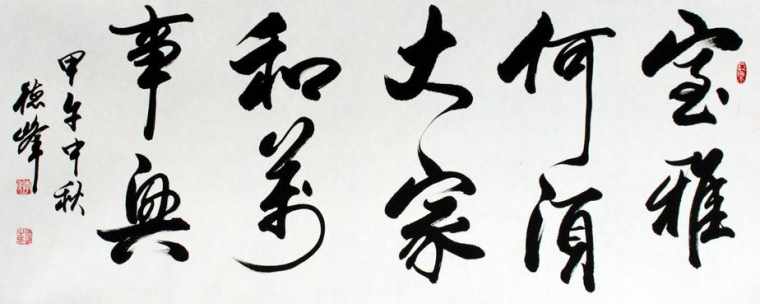 室雅
何須
大家
和萬
事興
甲午中秋
德峰